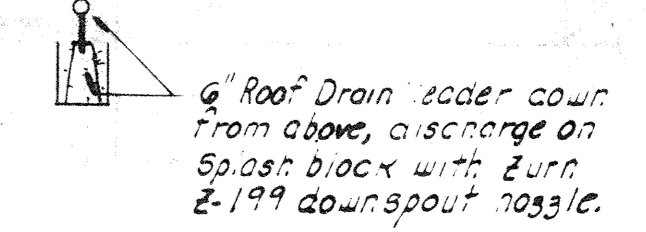 6" Roof Drain leader down
from above, discharge on
Splash block with Zurn
Z-199 downspout nozzle.